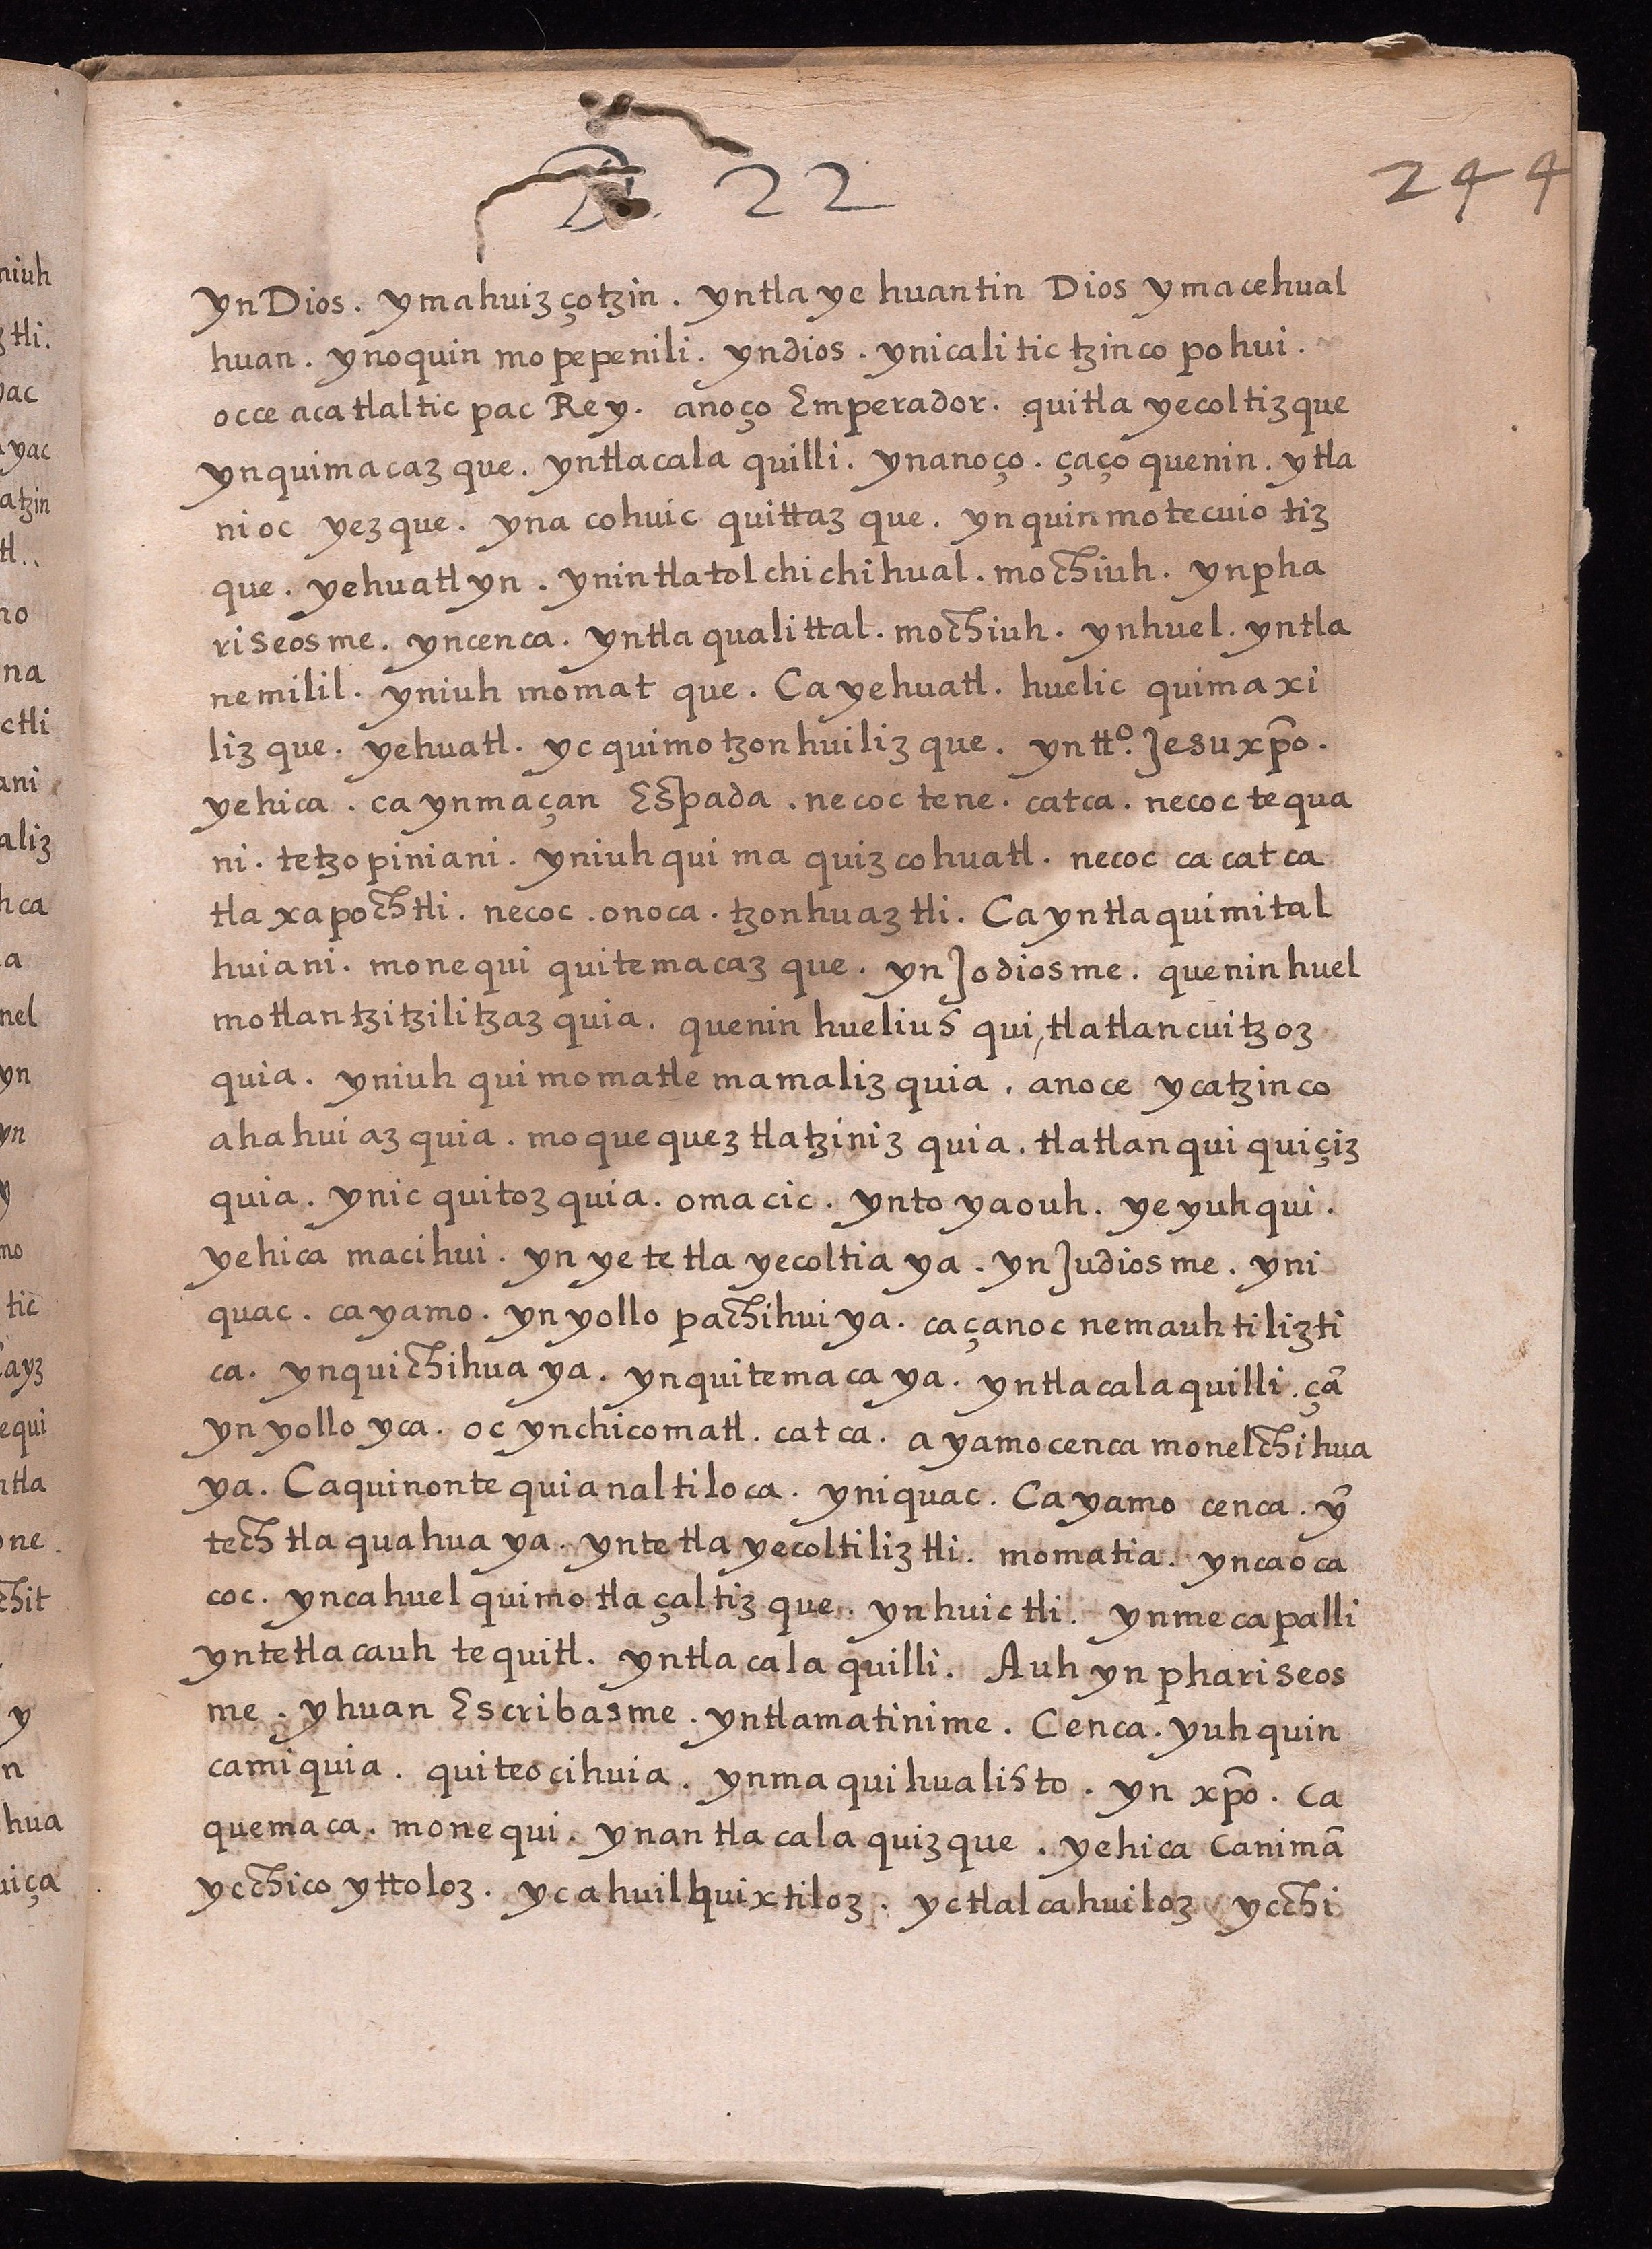 D. 22
244
yn Dios. ymahuizçotzin. yntla yehuantin Dios ymacehual
huan. ynoquin mopepenili. yndios. ynicalitictzinco pohui.
occe aca tlalticpac Rey. anoço Emperador. quitlayecoltizque
ynquimacazque. yntlacalaquilli. ynanoço. çaço quenin. ytla
ni oc yezque. yna cohuic quittazque. ynquinmotecuiotiz
que. yehuatl yn. ynintlatolchichihual. mochiuh. ynpha
riseosme. yncenca. yntlaqualittal. mochiuh. ynhuel. yntla
nemilil. yniuh momatque. Ca yehuatl. huelic quimaxi
lizque. yehuatl. yc quimotzonhuilizque. yntto. Jesu xp̃o.
yehica. ca ynmaçan Espada. necoc tene. catca. necoc tequa
ni. tetzopiniani. yniuhqui maquizcohuatl. necoc ca catca
tlaxapochtli. necoc. onoca. tzonhuaztli. Ca yntlaquimital
huiani. monequi quitemacazque. yn Jodiosme. quenin huel
motlantzitzilitzazquia. quenin huel ius qui, tlatlancuitzoz
quia. yniuh qui momatlemamalizquia. anoce ycatzinco
ahahuiazquia. moquequeztlatzinizquia. tlatlanquiquiçiz
quia. ynic quitozquia. omacic. ynto yaouh. ye yuhqui.
yehica macihui. yn ye tetlayecoltiaya. yn Judiosme. yni
quac. ca yamo. yn yollo pachihuiya. caçanoc nemauhtilizti
ca. ynquichihuaya. ynquitemacaya. yntlacalaquilli. çã
yn yollo yca. oc ynchicomatl. catca. ayamocenca monelchihua
ya. Caquinontequianaltiloca. yniquac. Ca yamo cenca. ỹ
tech tlaquahuaya. yntetlayecoltiliztli. momatia. yncaoca
coc. yncahuel quimotlaçaltizque. ynhuictli. ynmecapalli
yntetlacauh tequitl. yntlacalaquilli. Auh yn phariseos
me. yhuan Escribasme. yntlamatinime. Cenca. yuhquin
camiquia. quiteocihuia. ynma quihualisto. yn xp̃o. Ca
quemaca. monequi. ynantlacalaquizque. yehica Canimã
ycchico yttoloz. yc ahuilquixtiloz. yctlalcahuiloz ycchi